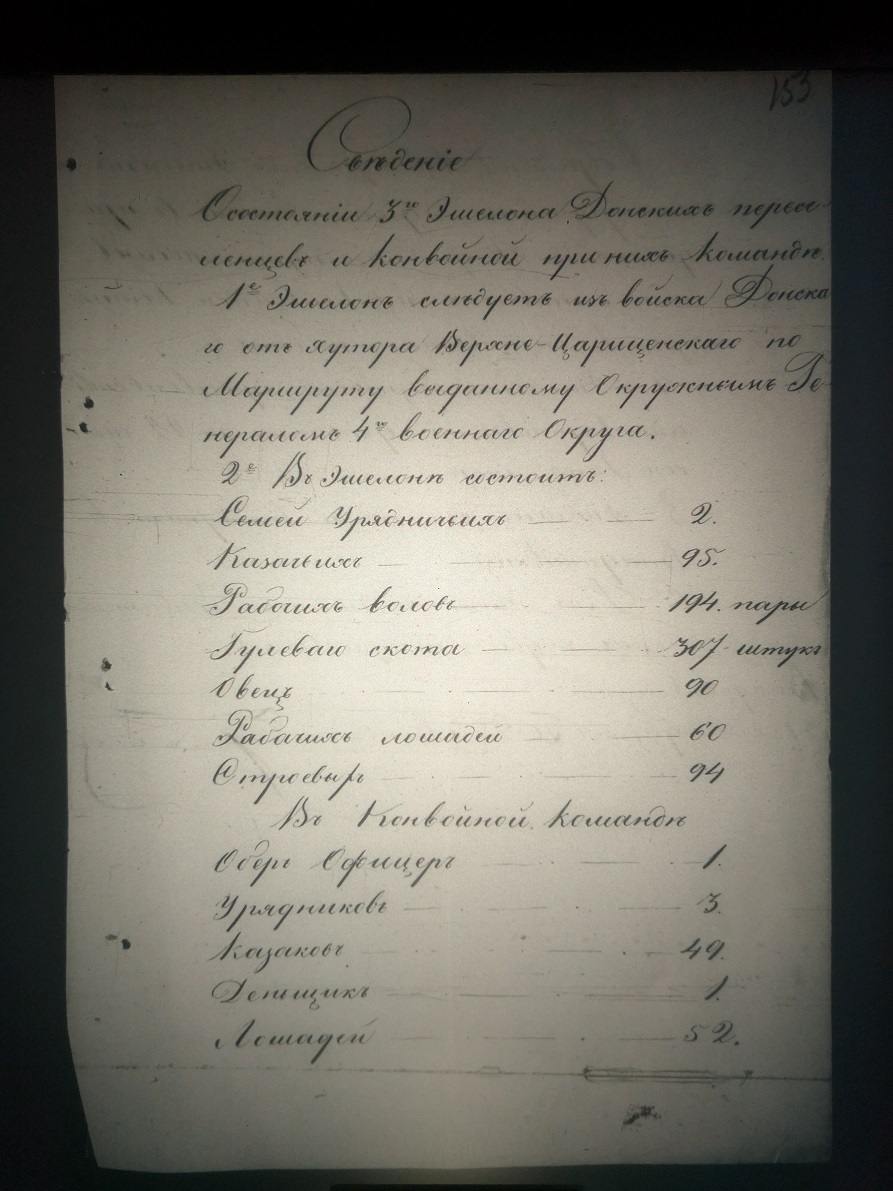 153
Свѣденіе
О состояніи 3го Эшелона Донскихъ пересе-
ленцевъ и конвойной при нихъ командѣ.
1е Эшелонъ слѣдуетъ изъ войска Донска
го отъ хутора Верхне-Цариценскаго по
Маршруту выданному Окружнымъ Ге-
нераломъ 4го военнаго Округа.
2е Въ Эшелонѣ состоитъ:
Семей Урядничьихъ 2.
Казачьихъ 95.
Рабочихъ воловъ 194. пары
Гулеваго скота 307 штукъ
Овецъ 90
Рабочихъ лошадей 60
Строевыхъ 94
Въ Конвойной командѣ
Оберъ Офицеръ 1.
Урядниковъ 3.
Казаковъ 49.
Деньщикъ 1.
Лошадей 52.